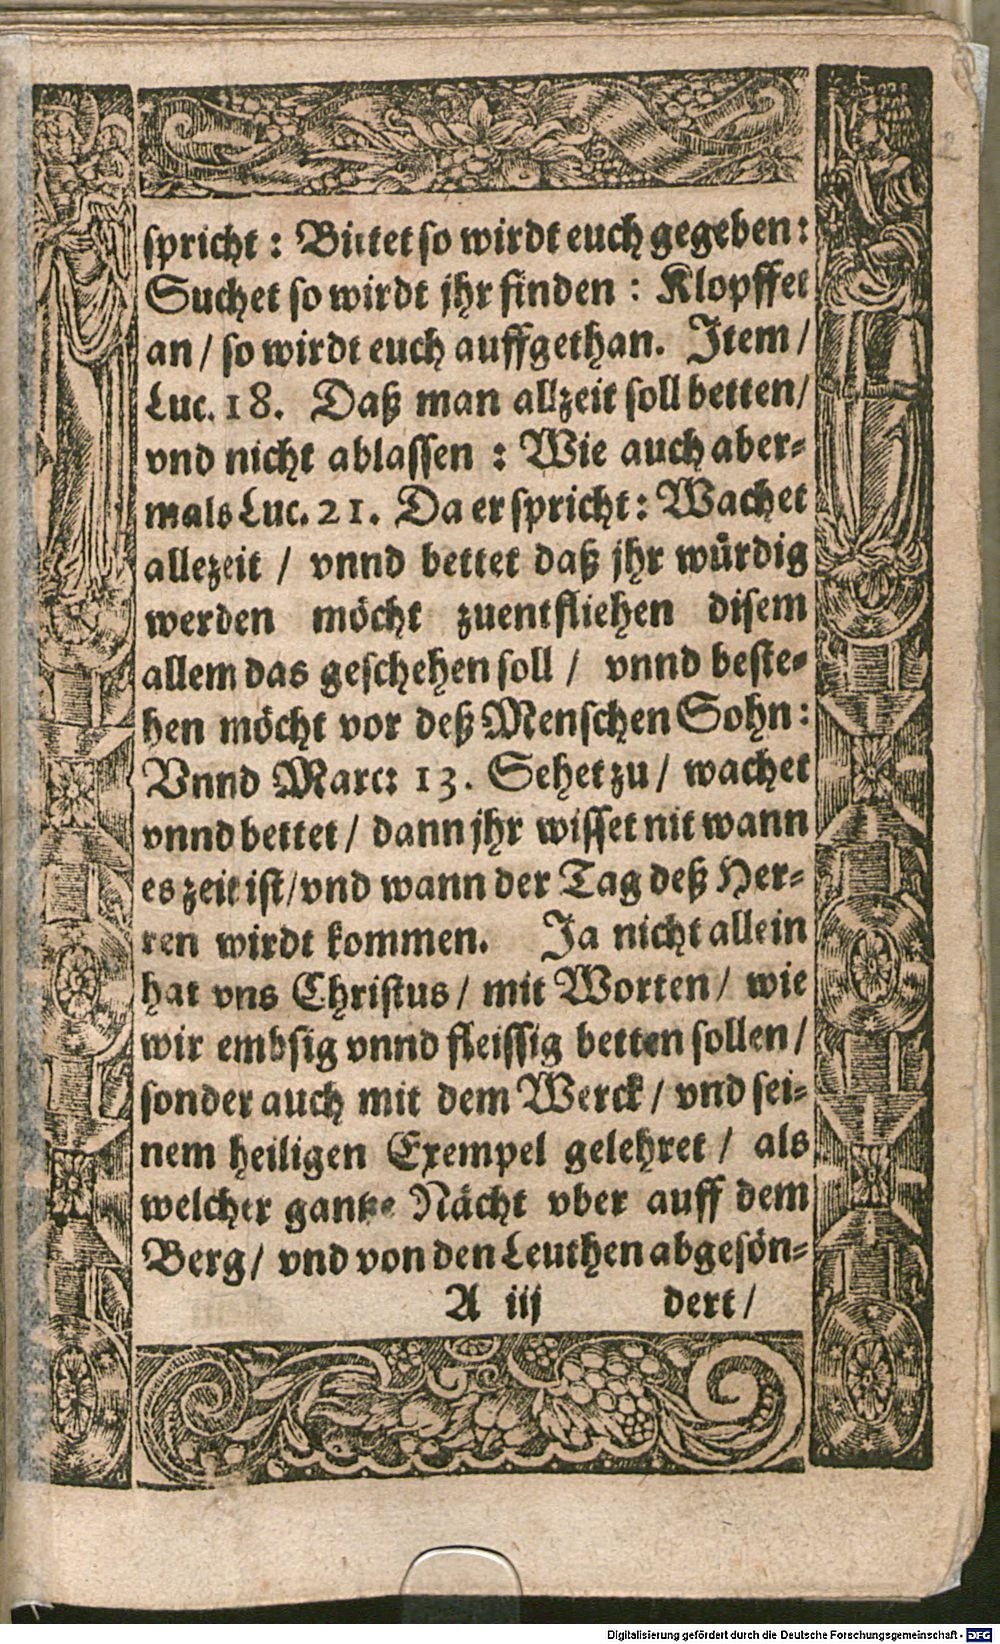 spricht : Bittet so wirdt euch gegeben :
Suchet so wirdt jhr finden : Klopffet
an / so wirdt euch auffgethan. Item /
Luc. 18. Daß man allzeit soll betten /
vnd nicht ablassen : Wie auch aber=
mals Luc. 21. Da er spricht : Wachet
allezeit / vnnd bettet daß jhr würdig
werden möcht zuentfliehen disem
allem das geschehen soll / vnnd beste=
hen möcht vor deß Menschen Sohn :
Vnnd Marc: 13. Sehet zu / wachet
vnnd bettet / dann jhr wisset nit wann
es zeit ist / vnd wann der Tag deß Her=
ren wirdt kommen. Ja nicht allein
hat vns Christus / mit Worten / wie
wir embsig vnnd fleissig betten sollen /
sonder auch mit dem Werck / vnd sei=
nem heiligen Exempel gelehret / als
welcher gantze Nächt vber auff dem
Berg / vnd von den Leuthen abgesön=
A iij dert /
Digitalisierung gefördert durch die Deutsche Forschungsgemeinschaft - DFG